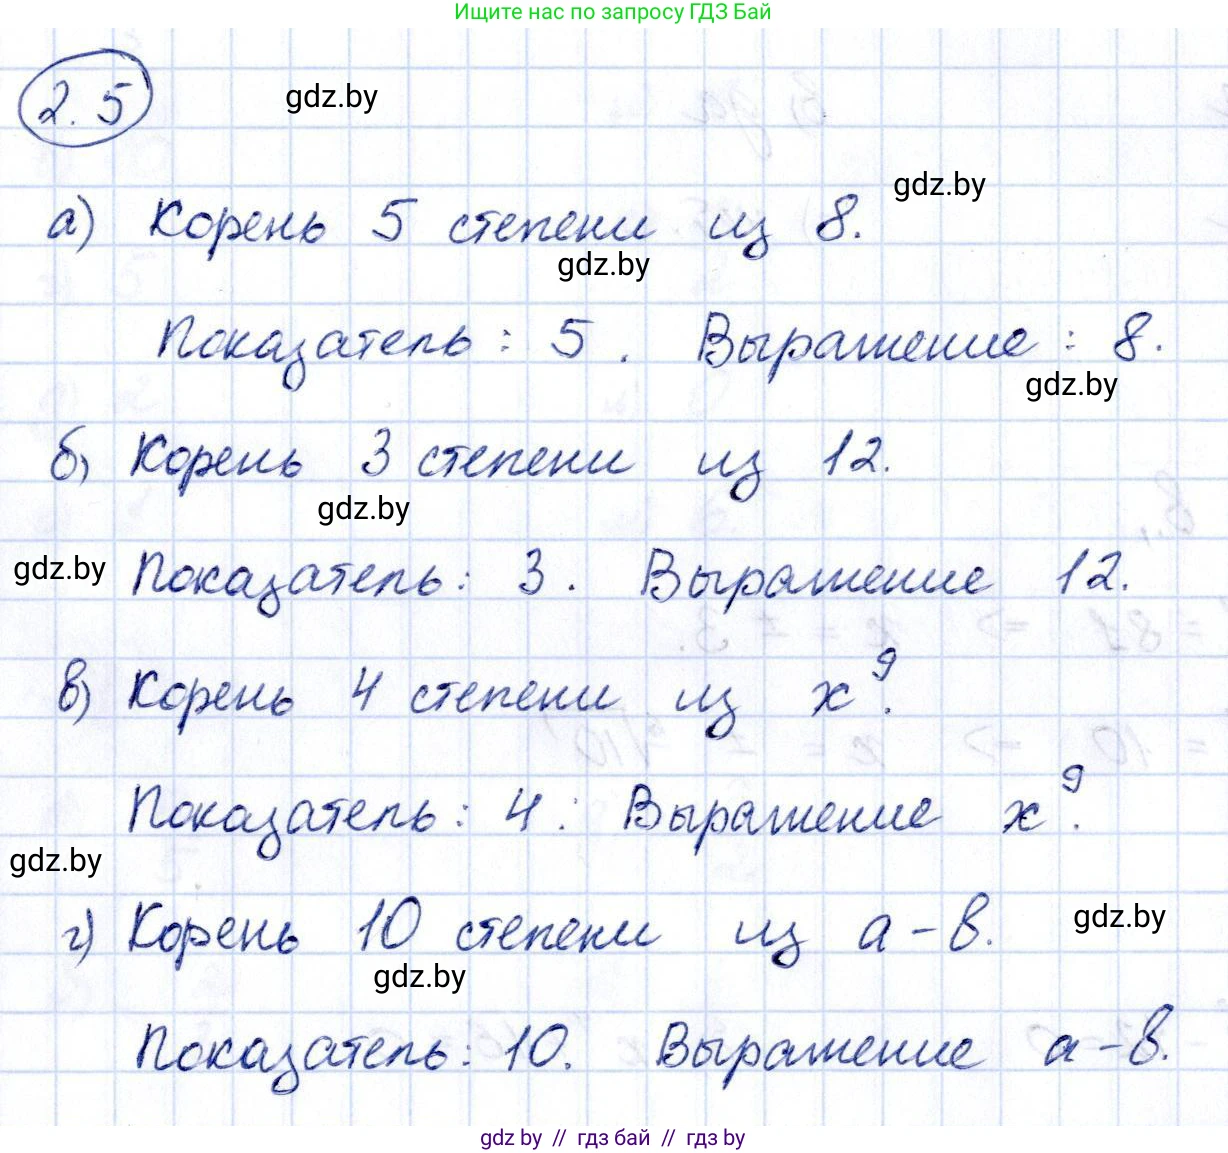 Ищите нас по запросу ГДЗ Бай
2.5
gdz.by
gdz.by
а) Корень 5 степени из 8.
gdz.by
Показатель: 5. Выражение: 8.
gdz.by
б) Корень 3 степени из 12.
gdz.by
gdz.by
Показатель: 3. Выражение 12.
в) Корень 4 степени из x⁹.
Показатель: 4. Выражение x⁹.
gdz.by
г) Корень 10 степени из a-b.
gdz.by
gdz.by
Показатель: 10. Выражение a-b.
gdz.by // гдз бай // гдз by